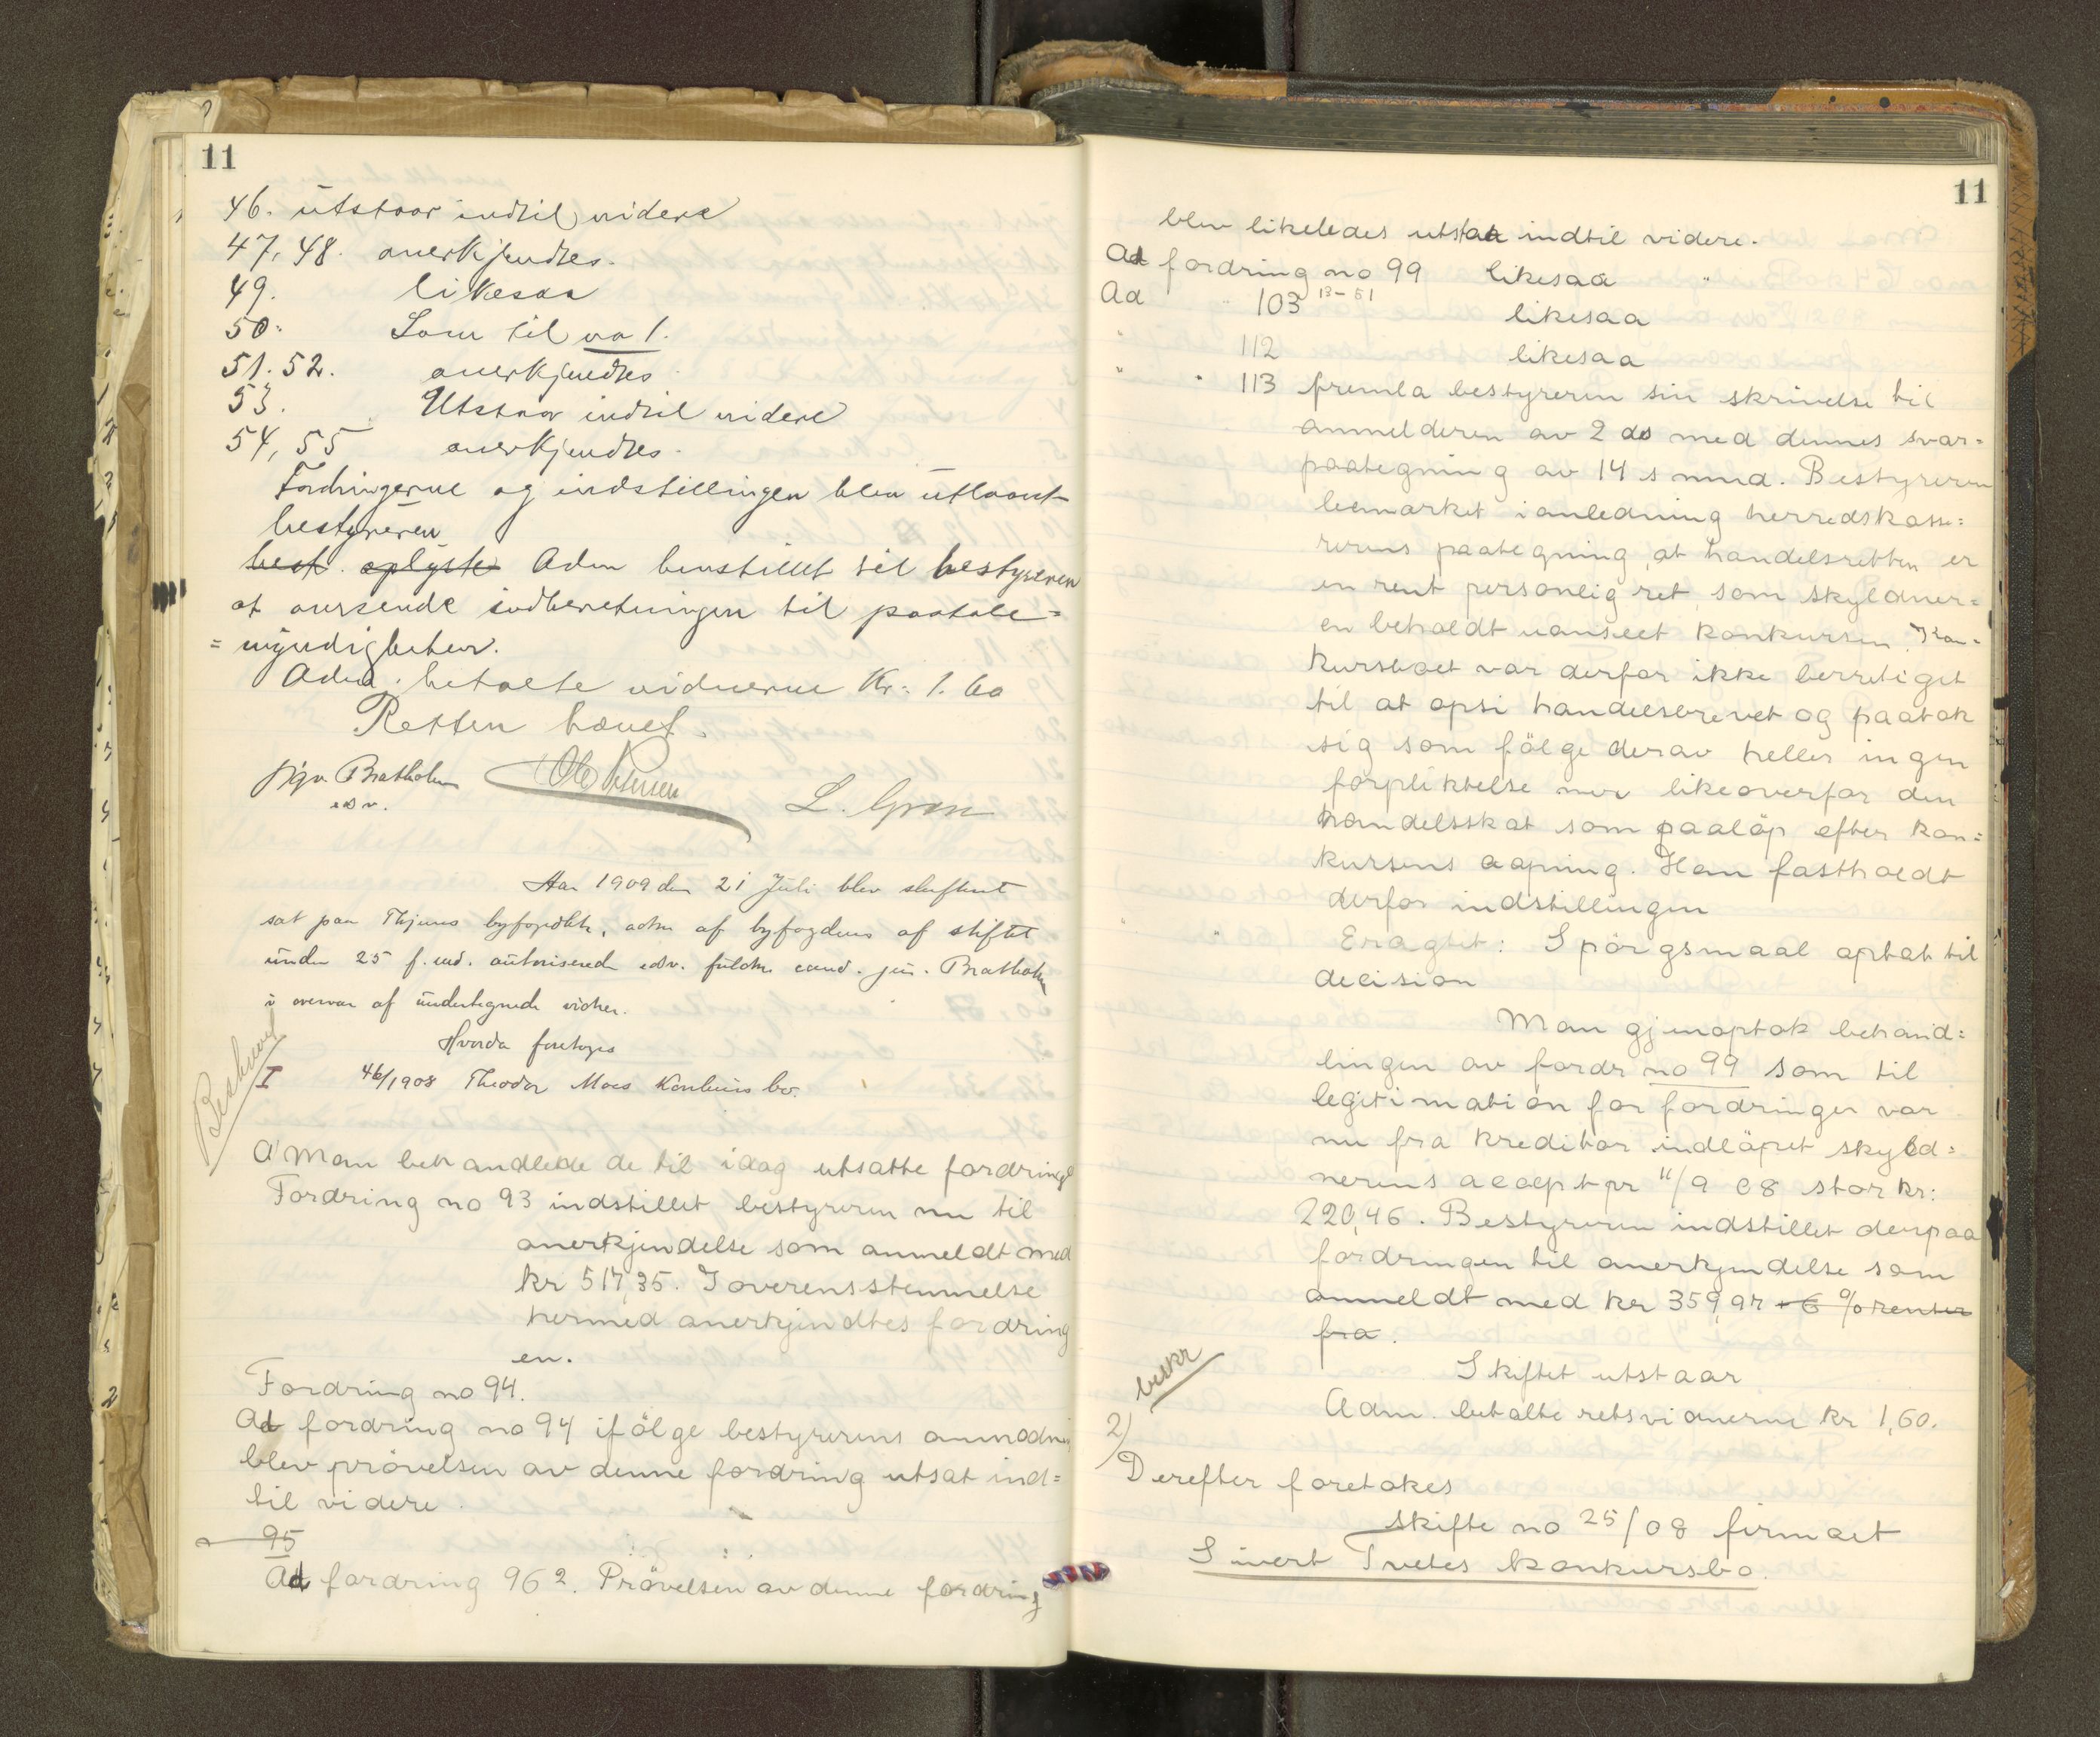 11
46. utstaar indtil videre
47, 48. anerkjendtes.
49. likesaa
50. Som til no 1.
51. 52. anerkjendtes
53. Utstaar indtil videre
54, 55 anerkjendtes.
Fordringerne og indstillingen blev utlaant
bestyreren
best. oplyste Adm henstillet til bestyreren
at oversende indberetningen til paatale=
=myndigheten.
Adm. betalte vidnerne Kr: 1.60
Retten hævet.
Sigv. Bratholm
edsv.
L. Gran
Aar 1909 den 21 Juli blev skifteret
sat paa byfogdktr, adm af byfogdens af skiftet
under 25 f. md. autoriserede edsv. fuldm. cand. jur. Bratholm
i overvær af undertegnede vidner.
Hvorda foretoges
I 46/1908 Theodor Moes Konkurs bo.
Man behandlede de til idag utsatte fordringe
Fordring no 93 indstillet bestyreren nu til
anerkjendelse som anmeldt med
kr 517,35. I overensstemmelse
hermed anerkjendtes fordring
en.
Fordring no 94.
Ad fordring no 94 ifölge bestyrerens anmodn
blev prövelsen av denne fordring utsat ind=
til videre.
95
Ad fordring 96 2. Prövelsen av denne fordring
11
blev likeledes utstaa indtil videre.
Ad fordring no 99 likesaa "
Ad " 103 13-51 likesaa
" 112 likesaa
" " 113 fremla bestyreren sin skrivelse til
anmelderen av 2 ds med dennes svar=
paategning av 14 s mnd. Bestyreren
bemærket i anledning herredskasse=
rerens paategning, at handelsretten er
en rent personlig ret som skyldner=
en beholdt uanseet konkursen. Kon=
kursboet var derfor ikke berretiget
til at opsi handelsbrevet og paatok
sig som fölge derav heller ingen
forpliktelse like overfor den
handelsskat som paalöp efter kon=
kursens aapning. Han fastholdt
derfor indstillingen
" " Eragtet: Spörgsmaal optat til
decision
Man gjenoptok behand=
lingen av fordr no 99 som til
legitimation for fordringen var
nu fra kreditor indlöpet skyld=
nerens accept pr 11/9 08 stor kr:
220,46. Bestyreren indstillet derpaa
fordringen til anerkjendelse som
anmeldt med kr 359,97 + 6 % renter
fra.
Skiftet utstaar
beskr
Adm. betalte retsvidnerne kr 1,60.
2)
Derefter foretokes
skifte no 25/08 firmaet
Sivert Tvetes konkursbo.